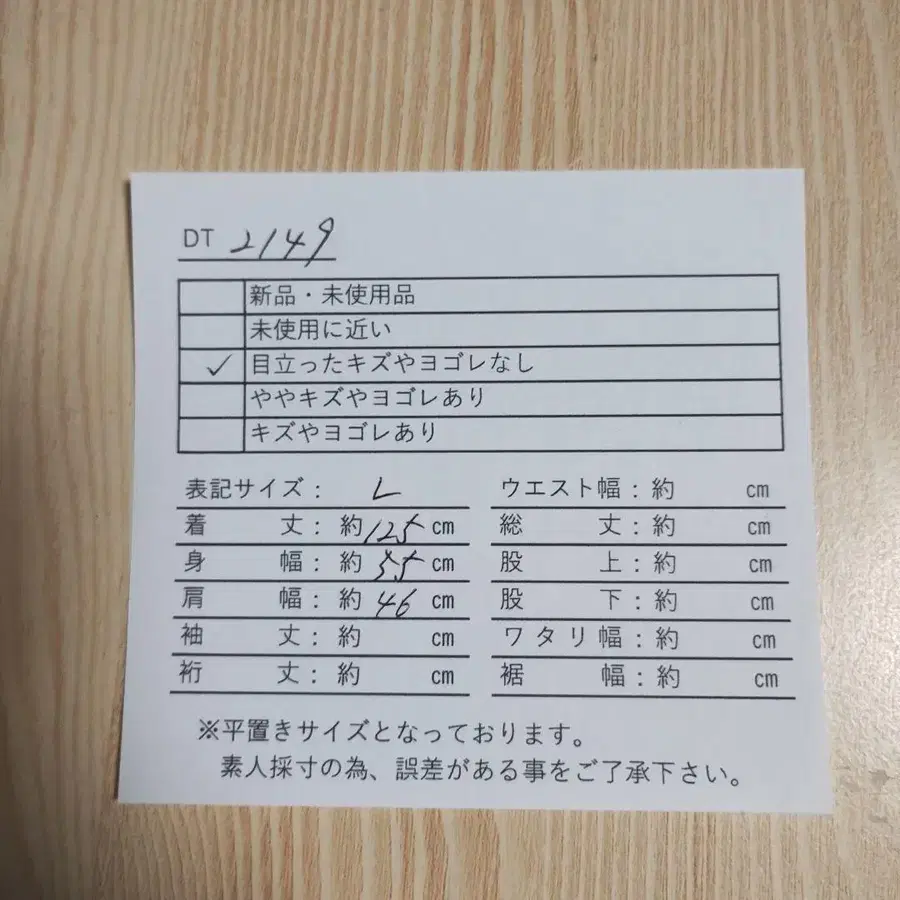 DT 2149
新品・未使用品
未使用に近い
✓ 目立ったキズやヨゴレなし
ややキズやヨゴレあり
キズやヨゴレあり
表記サイズ： L
着丈：約125cm
身幅：約55cm
肩幅：約46cm
袖丈：約 cm
裄丈：約 cm
ウエスト幅：約 cm
総丈：約 cm
股上：約 cm
股下：約 cm
ワタリ幅：約 cm
裾幅：約 cm
※平置きサイズとなっております。
素人採寸の為、誤差がある事をご了承下さい。